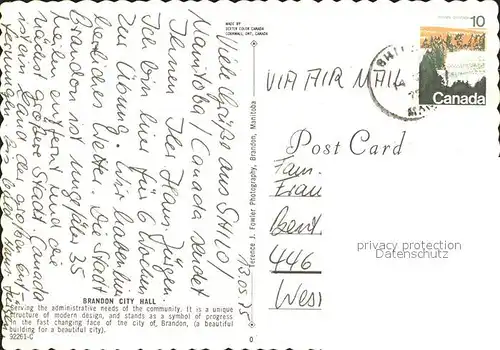 MADE BY
DEXTER COLOR CANADA
CORNWALL, ONT., CANADA
10
Canada
VIA AIR MAIL
Post Card
Fam.
Frau
446
privacy protection
Datenschutz
Viele Grüße aus SHILO/
Manitoba/Canada sendet
Ihnen Hans-Jürgen.
Ich bin hier für 6 Wochen
zur Übung. Wir haben hier
herrliches Wetter. Die Stadt
Brandon ist ungefähr 35
Meilen entfernt und die
nächst größere Stadt. Canada
ist ein Land der großen Ent-
13.05.75
Terence J. Fowler Photography, Brandon, Manitoba
BRANDON CITY HALL
Serving the administrative needs of the community. It is a unique
structure of modern design, and stands as a symbol of progress
in the fast changing face of the city of, Brandon, (a beautiful
building for a beautiful city).
92261-C